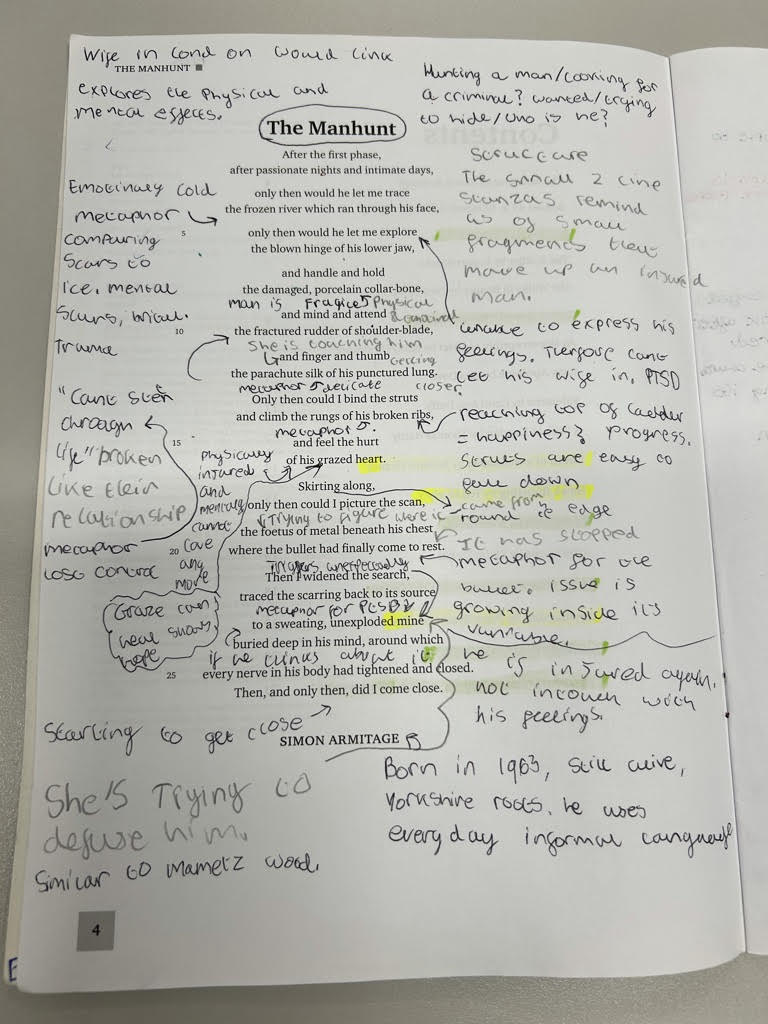 Wife in London would link
THE MANHUNT
explores the physical and
mental effects.
Hunting a man/looking for
a criminal? wanted/trying
to hide/who is he?
The Manhunt
After the first phase,
after passionate nights and intimate days,
only then would he let me trace
the frozen river which ran through his face,
5
only then would he let me explore
the blown hinge of his lower jaw,
and handle and hold
the damaged, porcelain collar-bone,
man is fragile physical
10
and mind and attend
the fractured rudder of shoulder-blade,
She is touching him
and finger and thumb
getting
the parachute silk of his punctured lung.
metaphor delicate closer
Only then could I bind the struts
and climb the rungs of his broken ribs,
metaphor
15
and feel the hurt
of his grazed heart.
Skirting along,
only then could I picture the scan,
Trying to figure where it
came from
the foetus of metal beneath his chest
20
where the bullet had finally come to rest.
Triggers unexpectedly
Then I widened the search,
traced the scarring back to its source
metaphor for PTSD
to a sweating, unexploded mine
buried deep in his mind, around which
if he thinks about it
25
every nerve in his body had tightened and closed.
Then, and only then, did I come close.
SIMON ARMITAGE
Emotinaly cold
metaphor
compuring
Scars to
ice. mental
Scurs,
trauma
"Cant sten
through
life" broken
like their
relationship
metaphor
lost control
physically
injured
and
mentaly
cannot
love
and
move
Graze can
heal shows
hope
Starting to get close
She's Trying to
defuse him.
Similar to Mametz wood.
structure
The small 2 line
stanzas remind
us of small
fragments that
make up an injured
man.
unable to express his
feelings. Therfore cant
let his wife in. PTSD
reaching top of ladder
= happiness? Progress.
Struts are easy to
fall down
round the edge
It has stopped
metaphor for the
bullet. issue is
growing inside its
vunrable.
he is injured again.
not intouch with
his feelings.
Born in 1963, still alive,
Yorkshire roots. he uses
everyday informal language
4